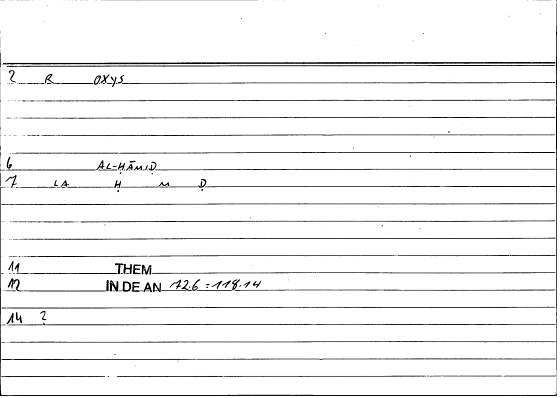 2 R OXYS
6 AL-ḤĀMIḌ
7 LA Ḥ M Ḍ
11 THEM
12 IN DE AN 126 = 118.14
14 ?